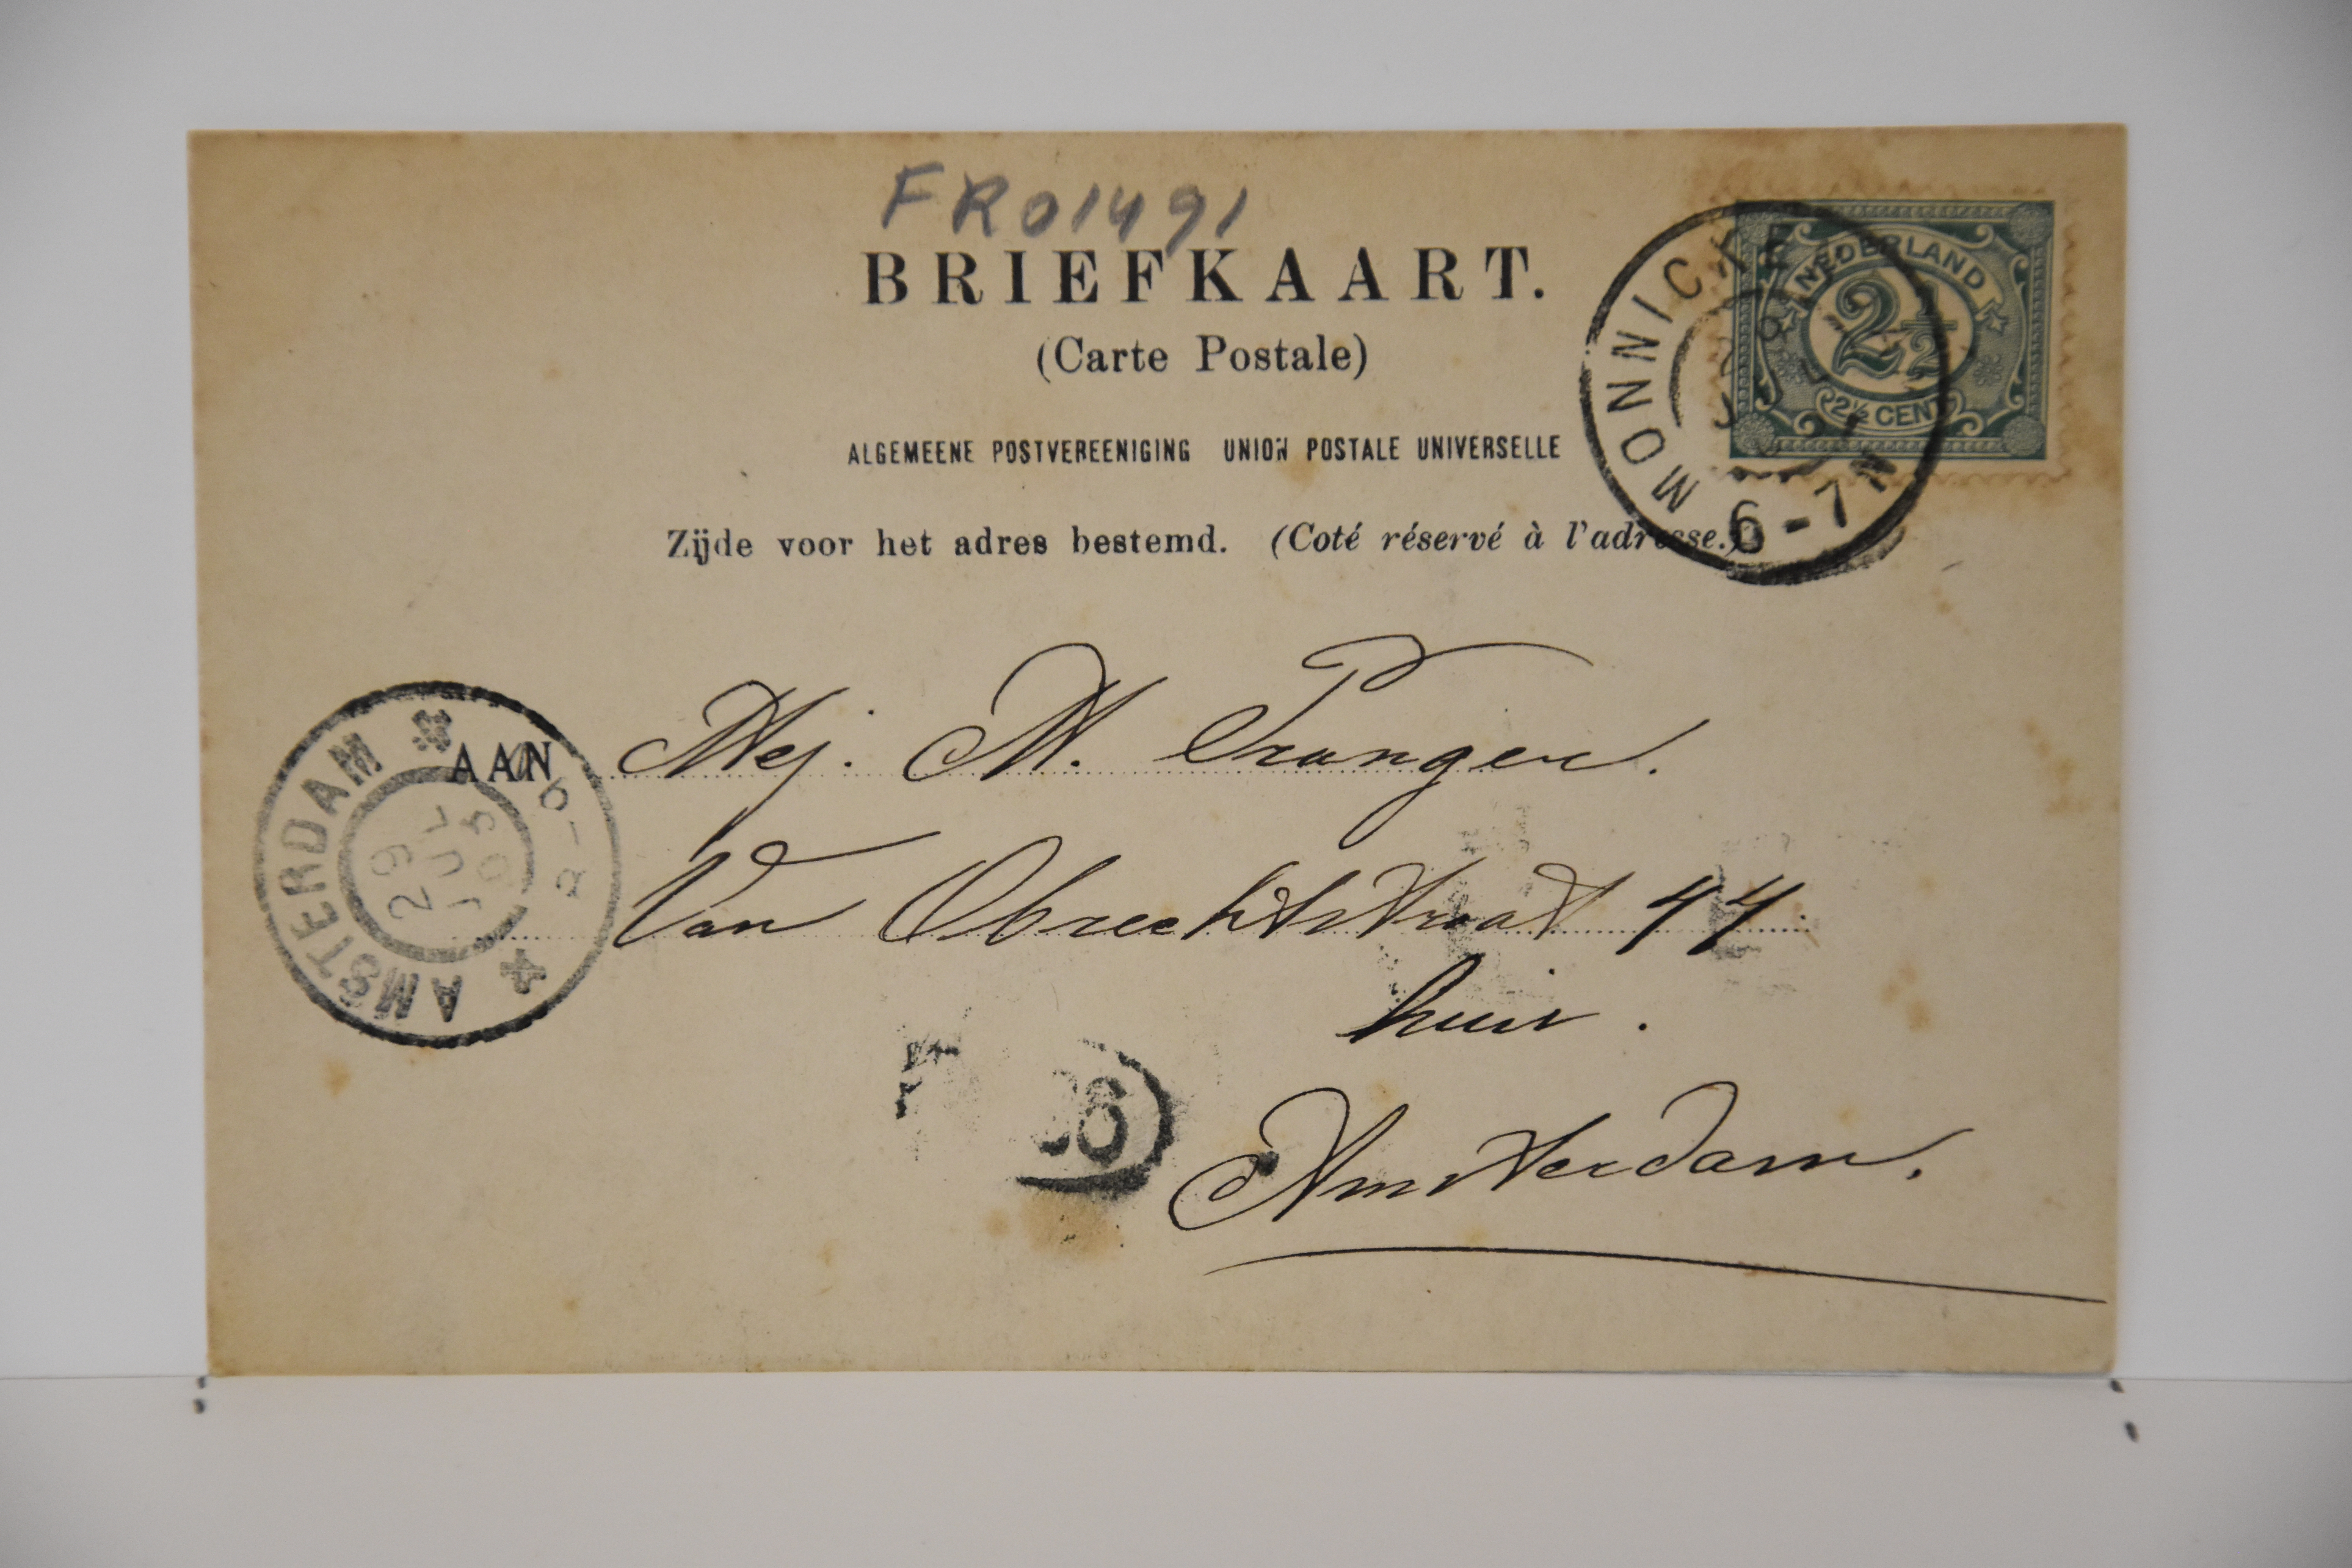 FR01491
BRIEFKAART.
(Carte Postale)
ALGEMEENE POSTVEREENIGING UNION POSTALE UNIVERSELLE
Zijde voor het adres bestemd. (Coté réservé à l'adresse.)
NEDERLAND
2½
2½ CENT
MONNICK
6-7N
AMSTERDAM
29
JUL
03
AAN Mej. M. Pranger.
Van Obrechtstraat 44.
huis.
Amsterdam.